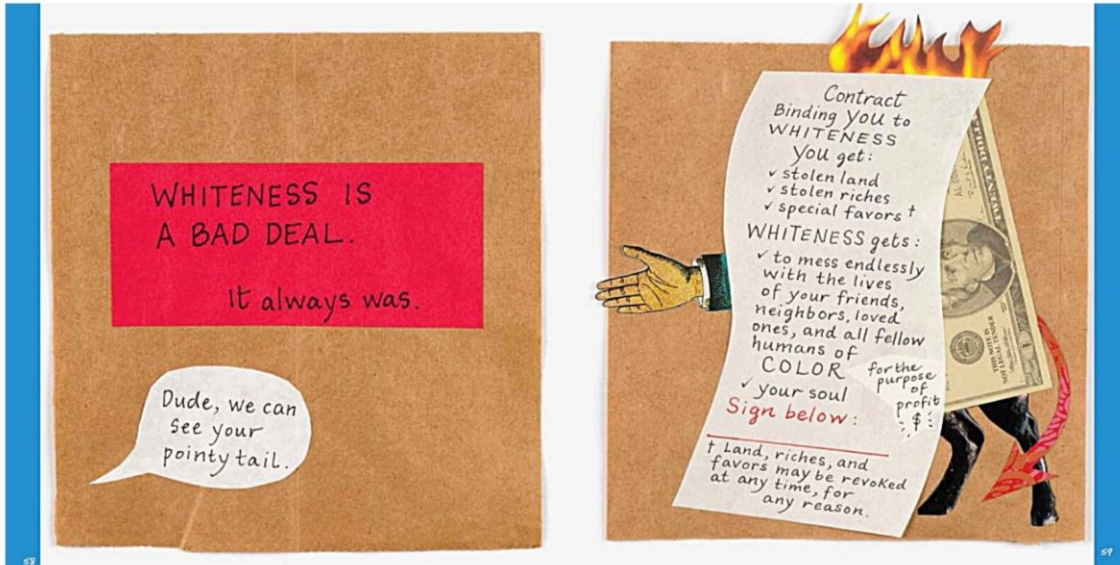 WHITENESS IS
A BAD DEAL.
It always was.
Dude, we can
see your
pointy tail.
58
Contract
Binding you to
WHITENESS
You get:
✓ stolen land
✓ stolen riches
✓ special favors †
WHITENESS gets:
✓ to mess endlessly
with the lives
of your friends,
neighbors, loved
ones, and all fellow
humans of
COLOR
✓ your soul
for the
purpose
of
profit
$
Sign below:
† Land, riches, and
favors may be revoked
at any time, for
any reason.
THIS NOTE IS
NOT LEGAL TENDER
59